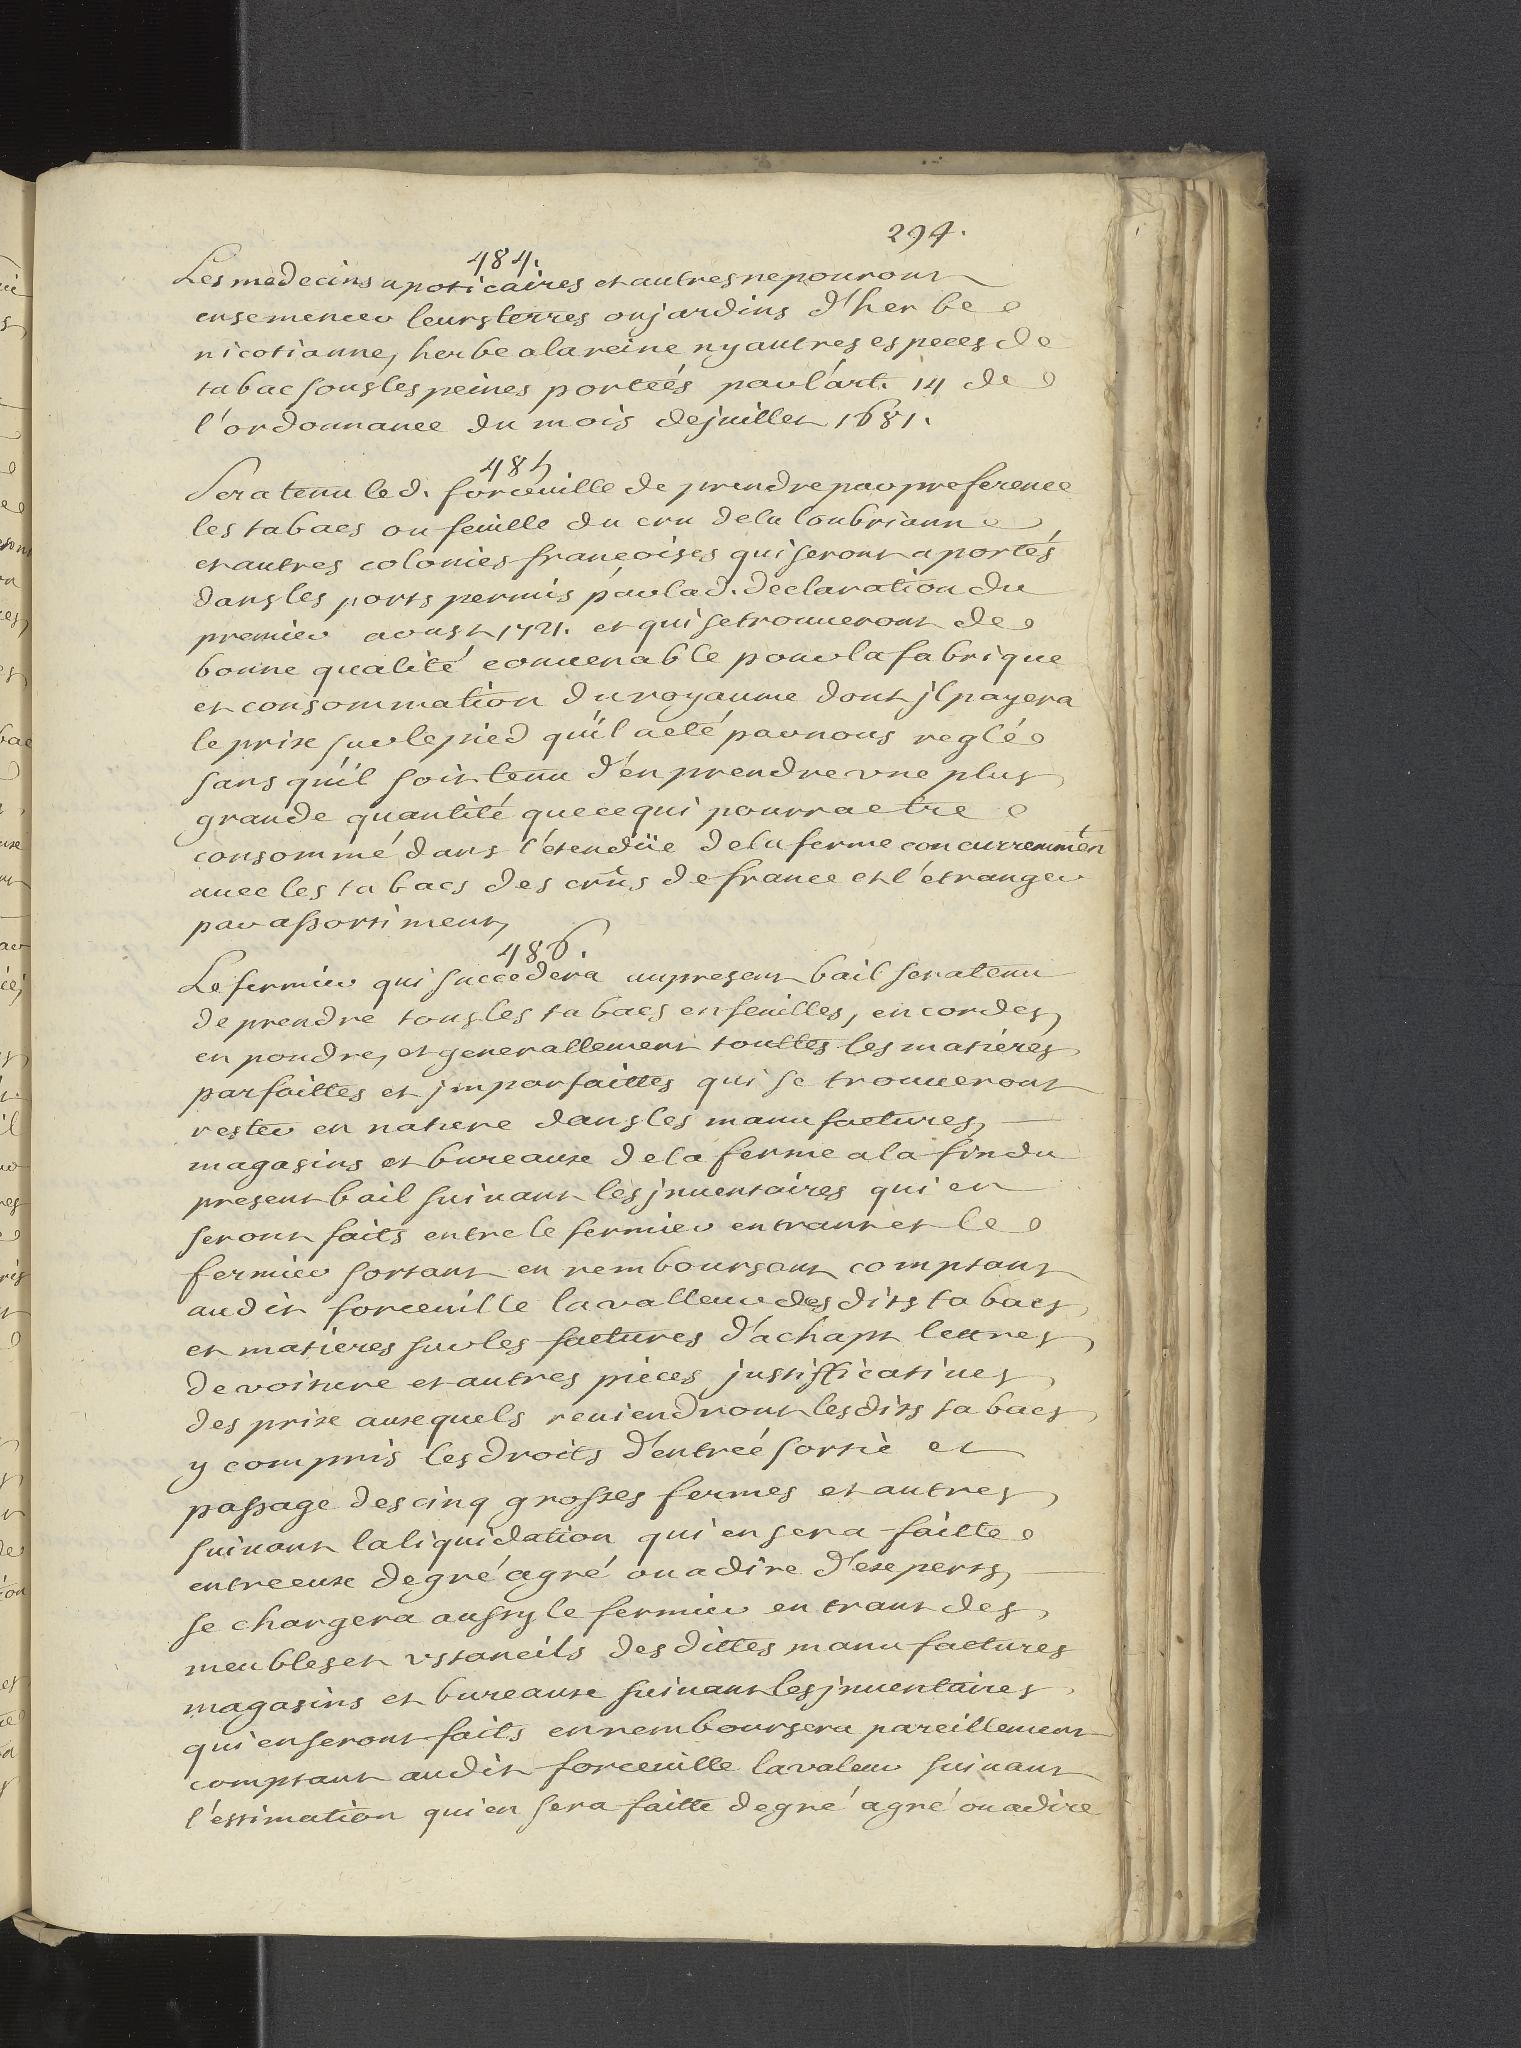 294.
484.
Les medecins apoticaires et autres ne pouront
ensemencer leurs terres ou jardins d'herbe
nicotianne, herbe a la reine ny autres especes de
tabac sous les peines porteés par l'art. 14 de
l'ordonnance du mois de juillet 1681.
485
Sera tenu led. forceuille de prendre par preference
les tabacs ou feuille du cru de la
et autres colonies françoises qui seront aportés
dans les ports permis par lad. declaration du
premier aoust 1721. et qui se trouueront de
bonne qualité conuenable pour la fabrique
et consommation du royaume dont jl payera
le prix sur le pied qu'il a eté par nous reglé
sans qu'il soit tenu d'en prendre vne plus
grande quantité que ce qui pourra etre
consommé dans l'étendüe de la ferme concurremmen.t
auec les tabacs des crûs de france et l'etranger
par assortiment,
486.
Le fermier qui succedera au present bail sera tenu
de prendre tous les tabacs en feuilles, en cordes,
en poudre, et generallement touttes les matiéres
parfaittes et jmparfaittes qui se trouueront
rester en nature dans les manufactures,
magasins et bureaux de la ferme a la fin du
present bail suiuant les jnuentaires qui en
seront faits entre le fermier entrant et le
fermier sortant en remboursant comptant
audit forceuille la valleur des dits tabacs
et matieres sur les factures d'achapt lettres
de voiture et autres piéces justifficatiues
des prix auxquels reuiendront les dits tabacs
y compris les droits d'entreé sortie et
passage des cinq grosses fermes et autres
suiuant la liquidation qui en sera faitte
entre eux de gré a gré ou a dire d'experts,
se chargera aussy le fermier entrant des
meubles et vstancils des dittes manufactures
magasins et bureaux suiuant les jnuentaires
qui en seront faits en remboursera pareillement
comptant audit forceuille la valeur suiuant
l'estimation qui en sera faitte de gré a gré ou a dire